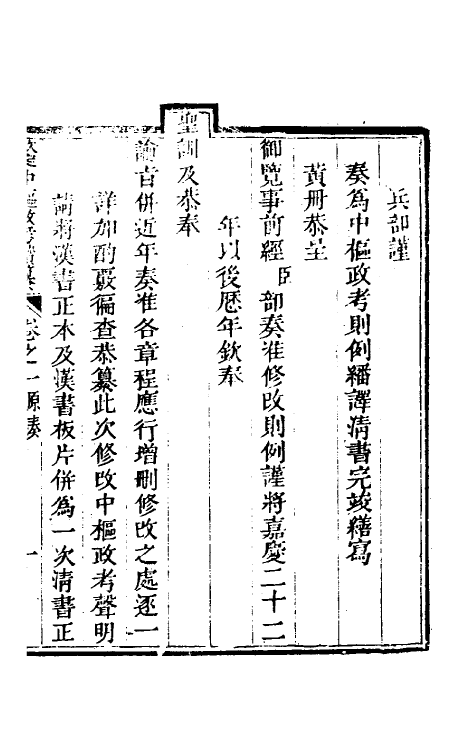 兵部謹
奏爲中樞政考則例繙譯清書完竣繕寫
黃册恭呈
御覽事前經臣部奏准修改則例謹將嘉慶二十二
年以後歷年欽奉
聖訓及恭奉
諭旨併近年奏准各章程應行增刪修改之處逐一
詳加酌覈徧查恭纂此次修改中樞政考聲明
請將漢書正本及漢書板片併爲一次清書正
卷之一原奏 一